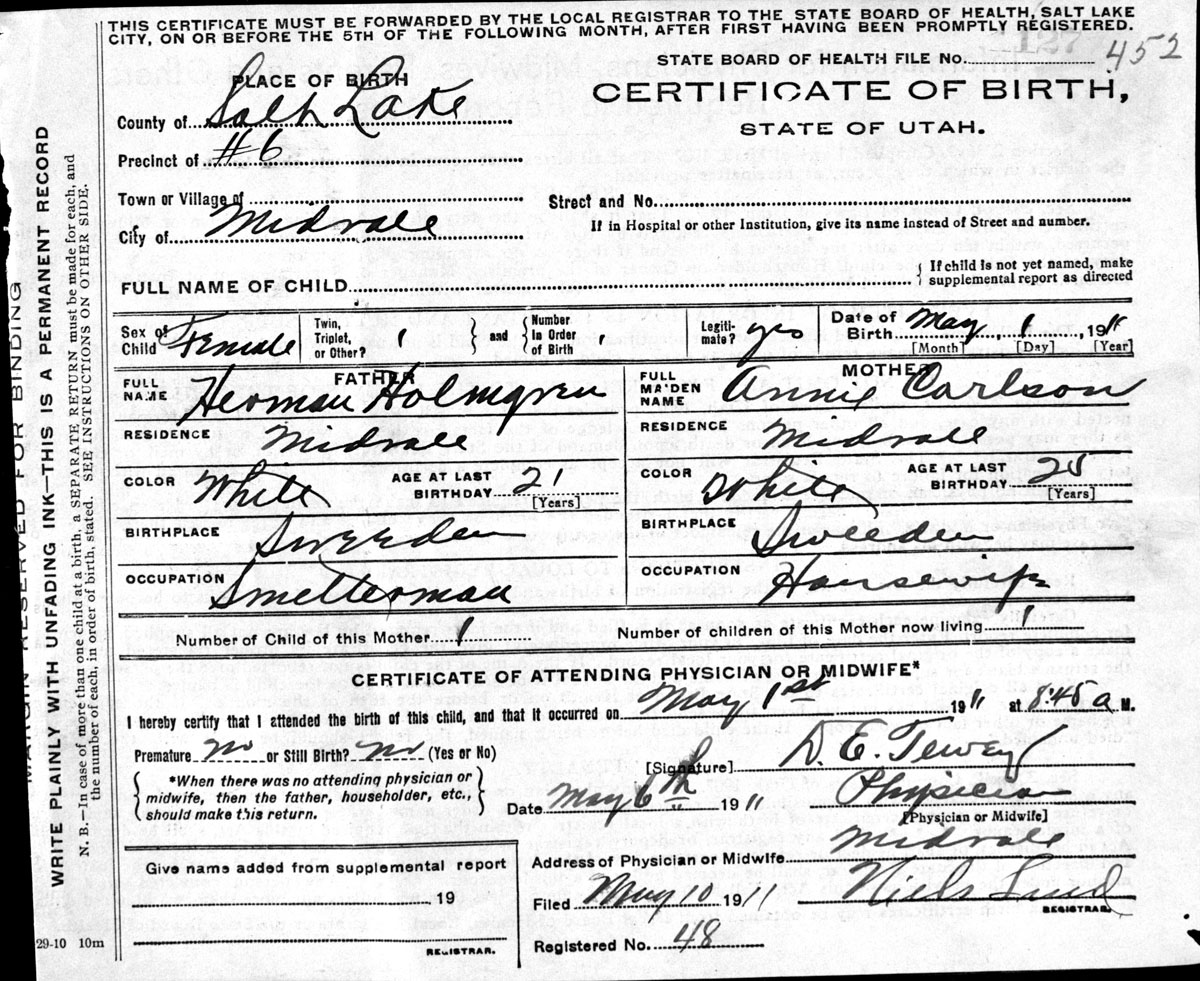 THIS CERTIFICATE MUST BE FORWARDED BY THE LOCAL REGISTRAR TO THE STATE BOARD OF HEALTH, SALT LAKE
CITY, ON OR BEFORE THE 5TH OF THE FOLLOWING MONTH, AFTER FIRST HAVING BEEN PROMPTLY REGISTERED.
STATE BOARD OF HEALTH FILE No. 452
CERTIFICATE OF BIRTH,
STATE OF UTAH.
PLACE OF BIRTH
County of Salt Lake
Precinct of #6
Town or Village of
City of Midvale
Street and No.
If in Hospital or other Institution, give its name instead of Street and number.
FULL NAME OF CHILD
{ If child is not yet named, make
supplemental report as directed
Sex of Child Female
Twin, Triplet, or Other? 1
} and { Number in Order of Birth
Legiti-mate? yes
Date of Birth May 1 1911
[Month] [Day] [Year]
FATHER
FULL NAME Herman Holmgren
RESIDENCE Midvale
COLOR White
AGE AT LAST BIRTHDAY 21
[Years]
BIRTHPLACE Sweeden
OCCUPATION Smelterman
MOTHER
FULL MAIDEN NAME Annie Carlson
RESIDENCE Midvale
COLOR White
AGE AT LAST BIRTHDAY
[Years]
BIRTHPLACE Sweeden
OCCUPATION Housewife
Number of Child of this Mother 1
Number of children of this Mother now living 1
CERTIFICATE OF ATTENDING PHYSICIAN OR MIDWIFE*
I hereby certify that I attended the birth of this child, and that it occurred on May 1st 1911 at 8.45 a M.
Premature no or Still Birth? no (Yes or No)
[Signature] D. E. Tewey
{ *When there was no attending physician or
midwife, then the father, householder, etc.,
should make this return. }
Date May 6th 1911
Physician
[Physician or Midwife]
Address of Physician or Midwife Midvale
Give name added from supplemental report
19
REGISTRAR.
Filed May 10 1911
Niels Lind
REGISTRAR.
Registered No. 48
29-10 10m
MARGIN RESERVED FOR BINDING
WRITE PLAINLY WITH UNFADING INK—THIS IS A PERMANENT RECORD
N. B.—In case of more than one child at a birth, a SEPARATE RETURN must be made for each, and
the number of each, in order of birth, stated. SEE INSTRUCTIONS ON OTHER SIDE.